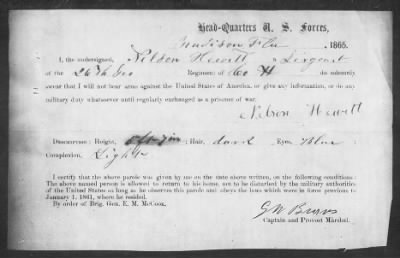 Head-Quarters U. S. Forces,
Madison Fla 1865.
I, the undersigned, Nelson Hewitt a Sergeant
of the 26th Geo Regiment of Co H do solemnly
swear that I will not bear arms against the United States of America, or give any information, or do any
military duty whatsoever until regularly exchanged as a prisoner of war.
Nelson Hewitt
Description: Height, Hair, dark Eyes, blue
Complexion, Light
I certify that the above parole was given by me on the date above written, on the following conditions:
The above named person is allowed to return to his home, not to be disturbed by the military authorities
of the United States so long as he observes this parole and obeys the laws which were in force previous to
January 1, 1861, where he resided.
By order of Brig. Gen. E. M. McCook.
G W Burns
Captain and Provost Marshal.